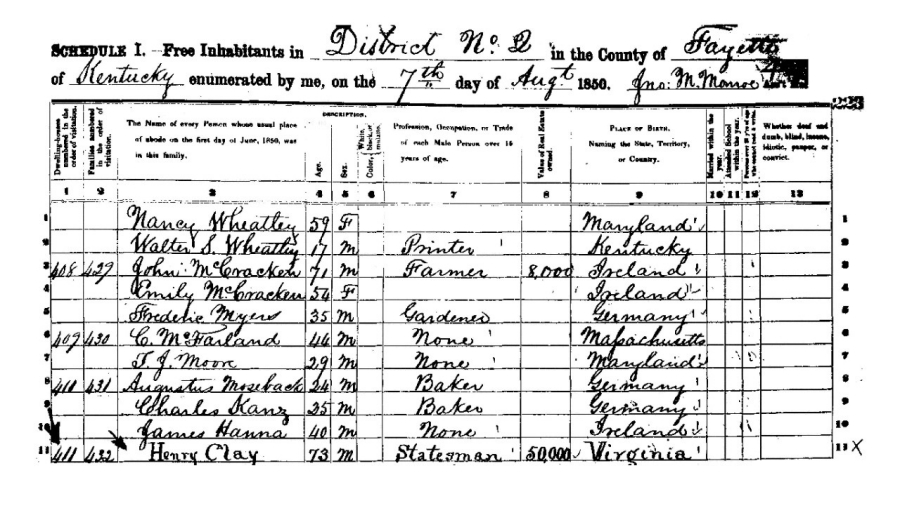 SCHEDULE I. Free Inhabitants in District No. 2 in the County of Fayette
of Kentucky enumerated by me, on the 7th day of Augt. 1850. Jno: M. Monroe
Dwelling-houses numbered in the order of visitation. Families numbered in the order of visitation. The Name of every Person whose usual place of abode on the first day of June, 1850, was in this family. DESCRIPTION. Age. Sex. Color, White, black, or mulatto. Profession, Occupation, or Trade of each Male Person over 15 years of age. Value of Real Estate owned. PLACE OF BIRTH. Naming the State, Territory, or Country. Married within the year. Attended School within the year. Whether deaf and dumb, blind, insane, idiotic, pauper, or convict.
1 2 3 4 5 6 7 8 9 10 11 12 13
1 Nancy Wheatley 59 F Maryland 1
2 Walter S. Wheatley 17 M Printer Kentucky 2
3 408 429 John McCracken 71 M Farmer 8,000 Ireland 3
4 Emily McCracken 54 F Ireland 4
5 Frederic Myers 35 M Gardener Germany 5
6 409 430 C. McFarland 44 M None Massachusetts 6
7 T. J. Moore 29 M None Maryland 7
8 411 431 Augustus Moseback 24 M Baker Germany 8
9 Charles Kanz 35 M Baker Germany 9
10 James Hanna 40 M None Ireland 10
11 411 432 Henry Clay 73 M Statesman 50,000 Virginia 11 X